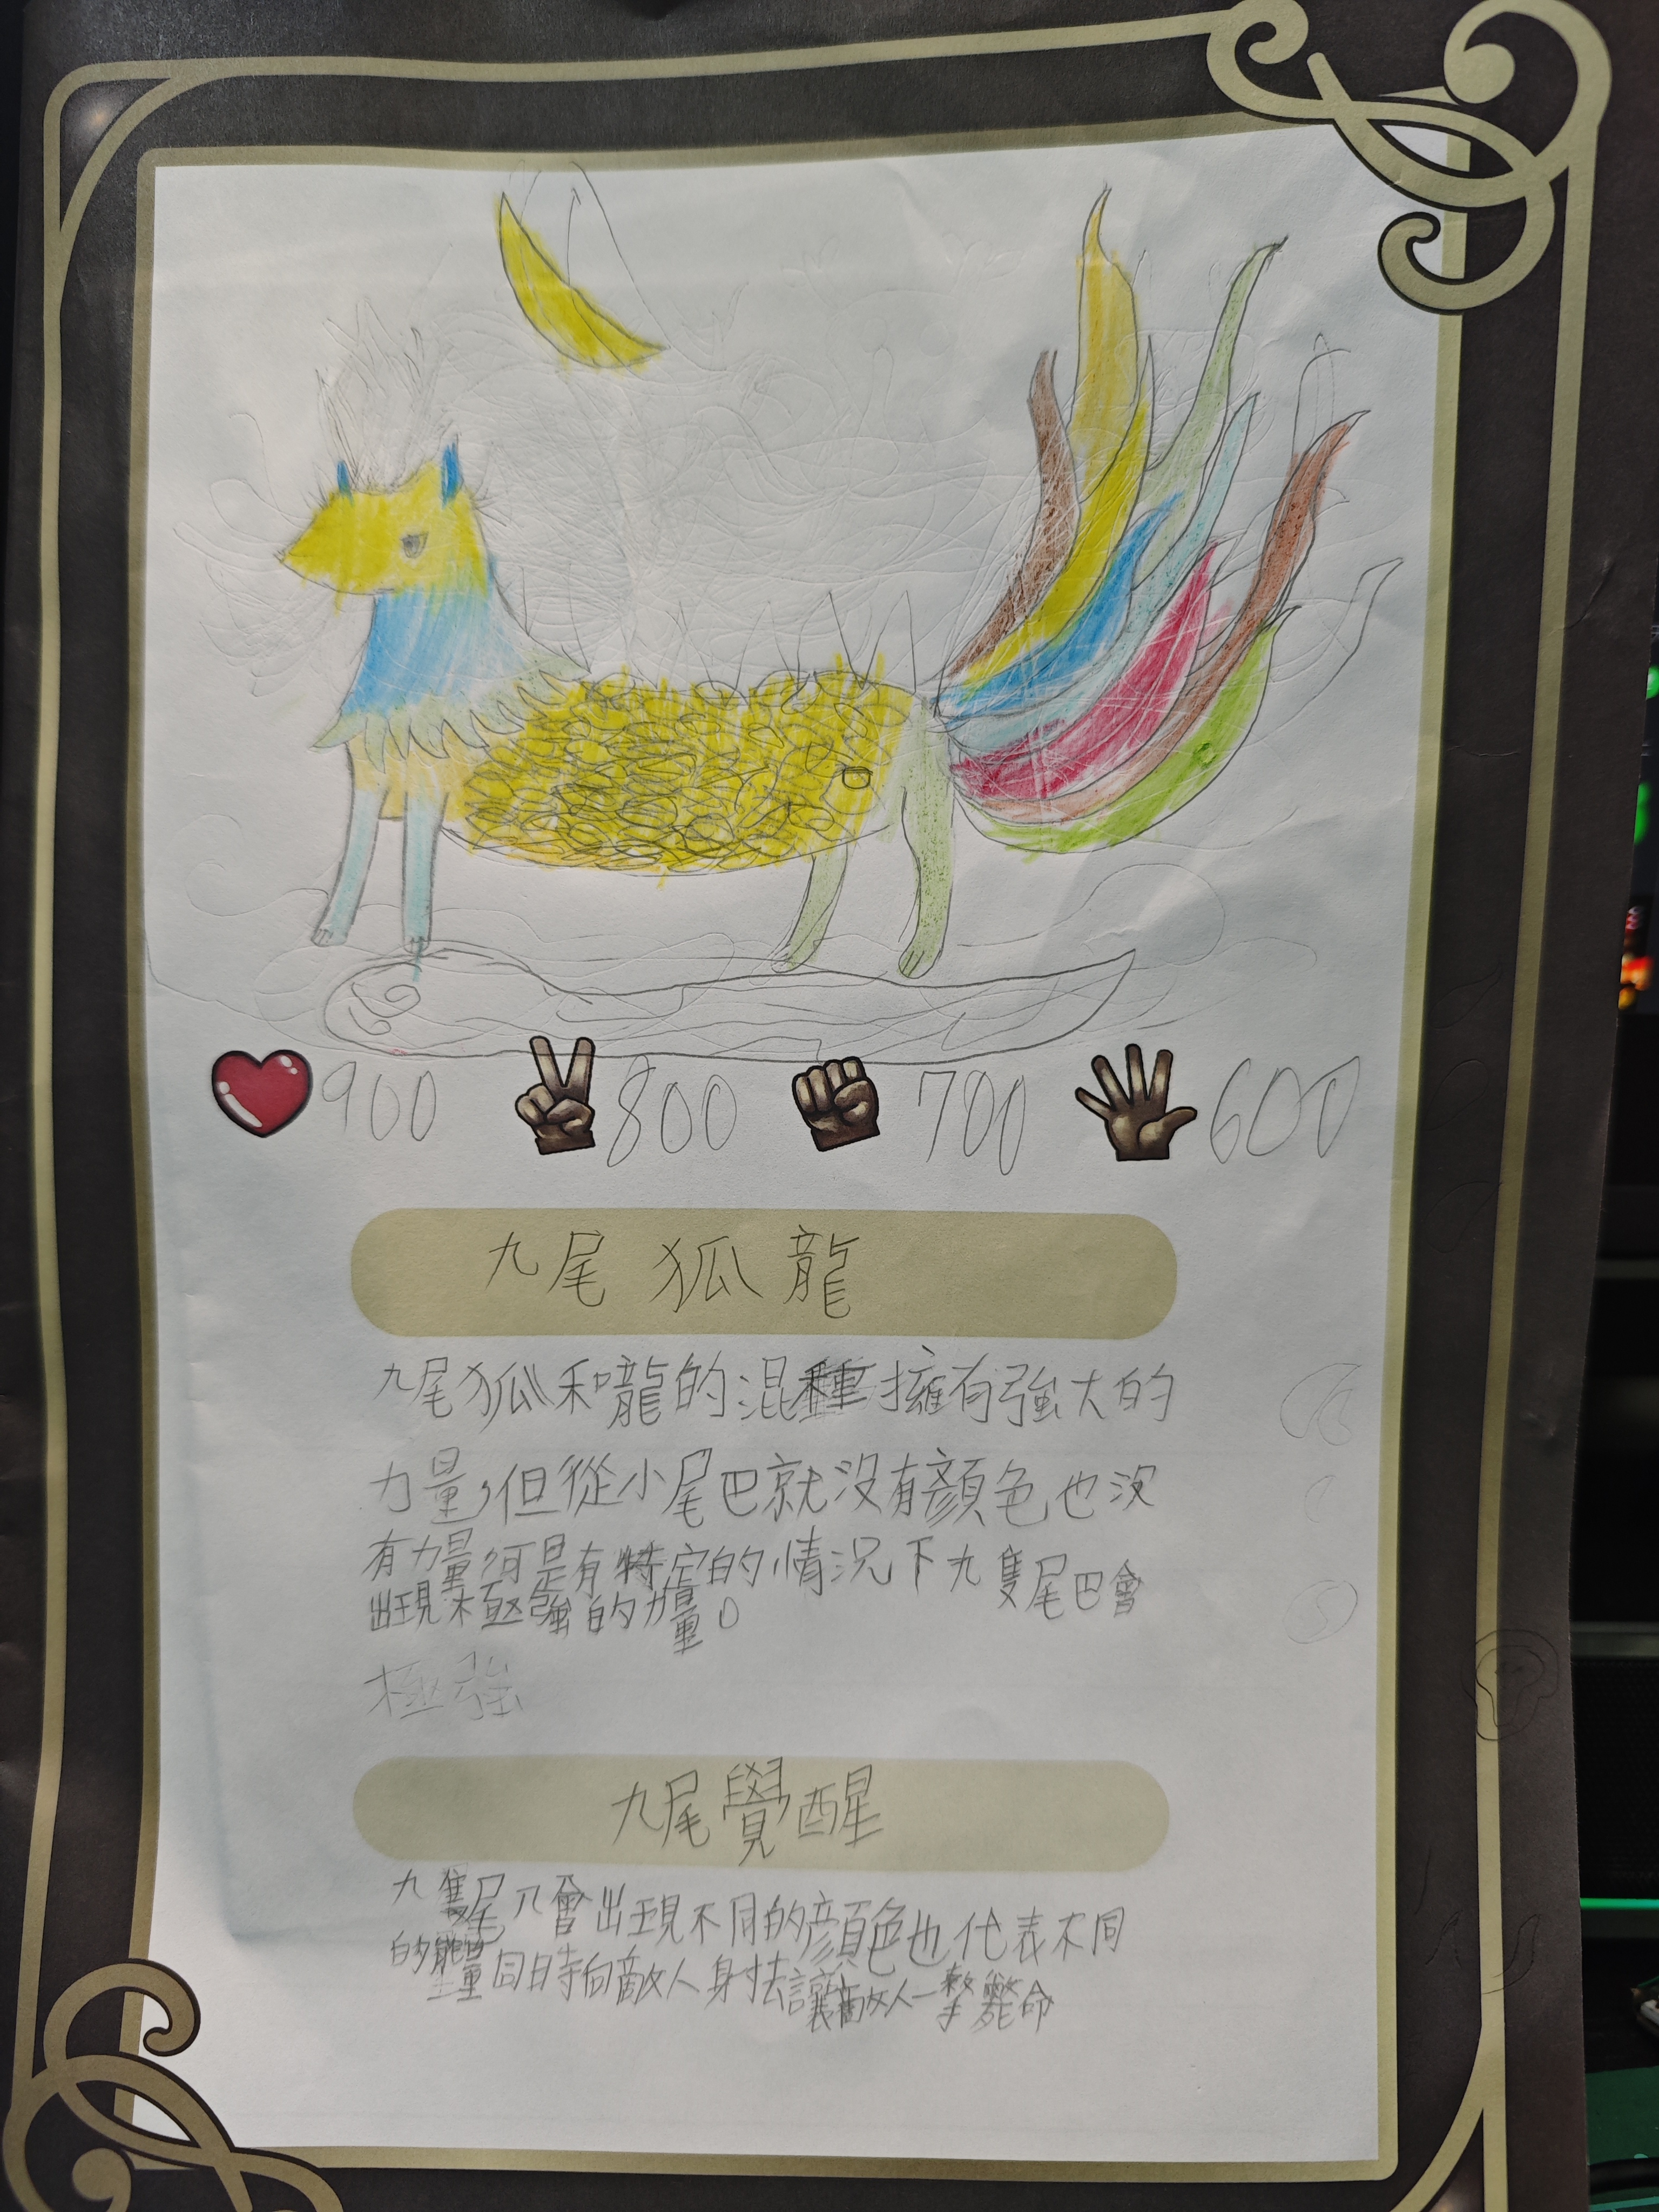 900 800 700 600
九尾狐龍
九尾狐和龍的混種擁有強大的
力量,但從小尾巴就沒有顏色也沒
有力量,可是有特定的情況下九隻尾巴會
出現極強的力量。
極強
九尾覺醒
九隻尾八會出現不同的顏色也代表不同
的能量同時向敵人射去讓敵人一擊斃命